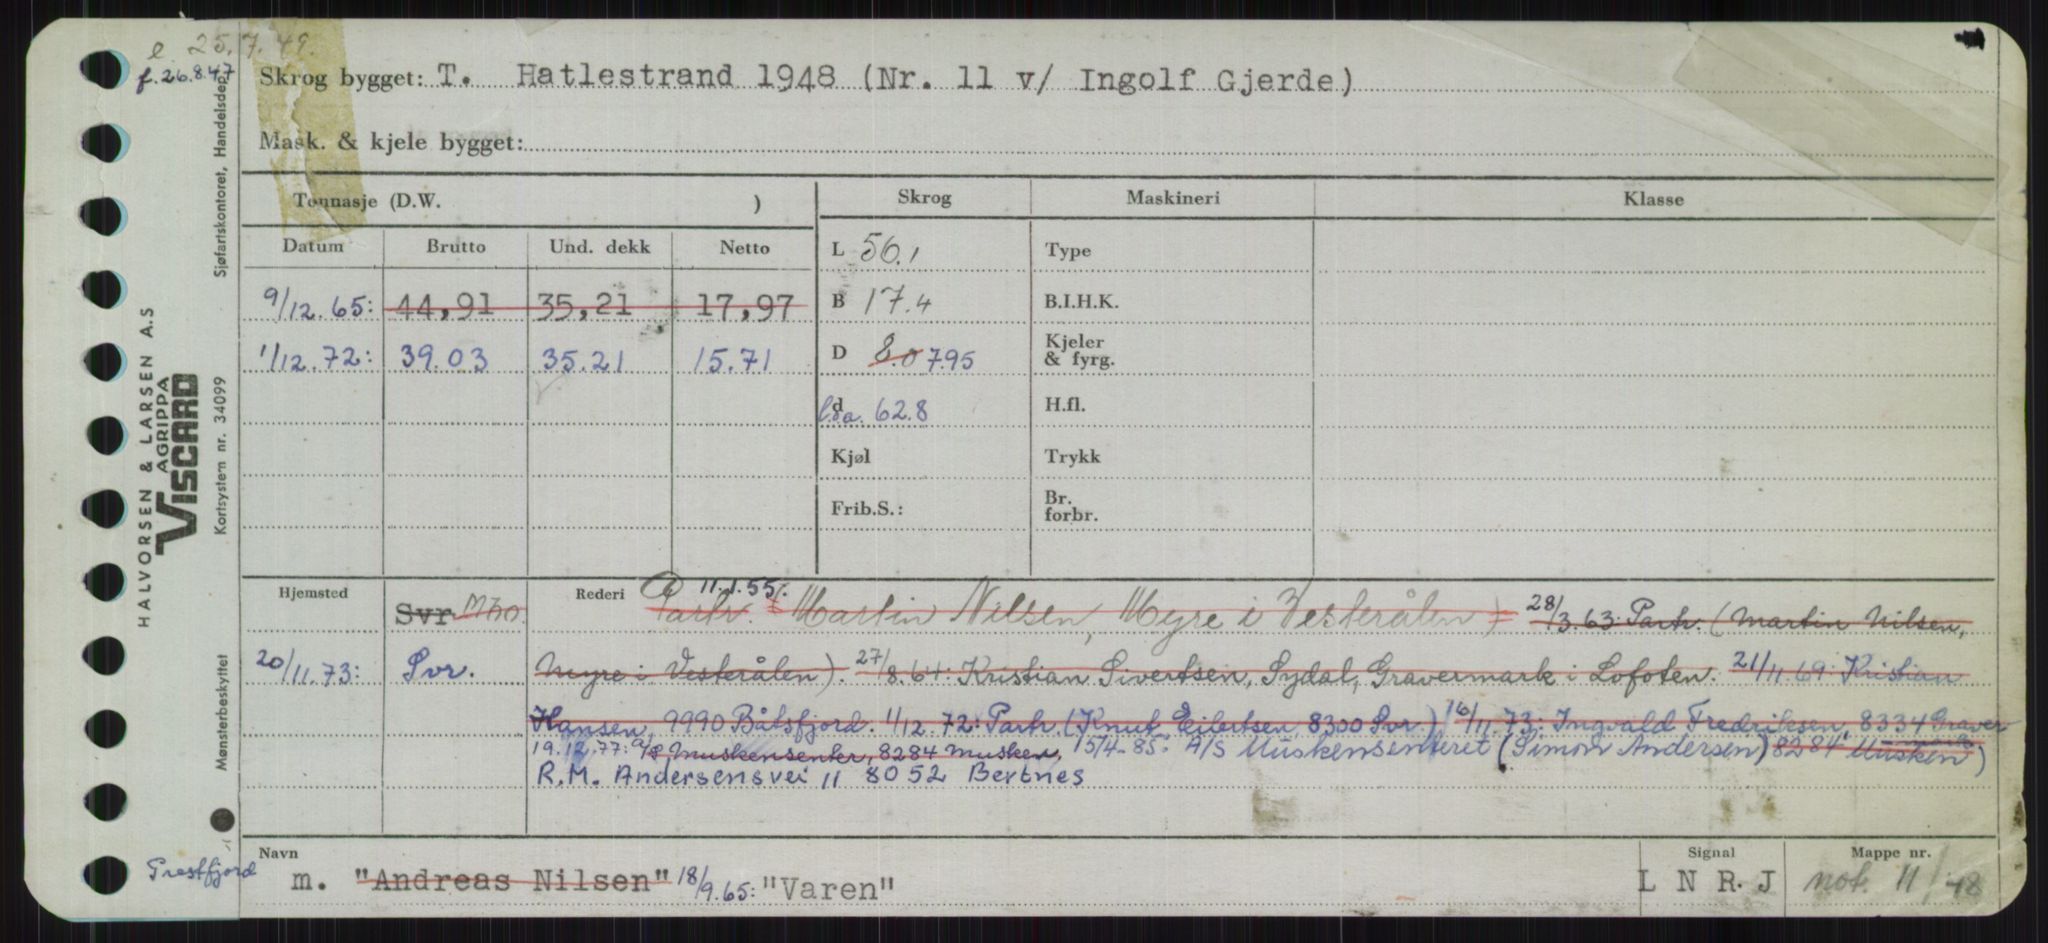 e 25.7.49.
f. 26.8.47
Skrog bygget: T. Hatlestrand 1948 (Nr. 11 v/ Ingolf Gjerde)
Mask. & kjele bygget:
Tonnasje (D.W. )
Skrog Maskineri Klasse
Datum Brutto Und. dekk Netto
L 56.1 Type
9/12.65: 44,91 35,21 17,97
B 17.4 B.I.H.K.
1/12.72: 39.03 35.21 15.71
D 8.0 7.95 Kjeler & fyrg.
d l.o.a. 62.8 H.fl.
Kjøl Trykk
Frib.S.: Br. forbr.
Hjemsted Svr Rederi 11.1.55: Partr. (Martin Nilsen, Myre i Vesterålen) 28/3.63: Partr. (Martin Nilsen,
20/11.73: Svr. Myre i Vesterålen). 27/8.64: Kristian Sivertsen, Sydal, Gravermark i Lofoten. 21/11.69: Kristian
Hansen, 9990 Båtsfjord. 1/12.72: Partr. (Knut Eilertsen, 8300 Svr.) 16/11.73: Ingvald Fredriksen, 8334 Graver
19.12.77: A/S Muskensenter, 8284 Musken, 15/4.85: A/S Muskensenteret (Simon Andersen) 8284 Musken)
R.M. Andersensvei 11 8052 Bertnes
Navn m. "Andreas Nilsen" 18/9.65: "Varen"
Signal L N R. J
Mappe nr. not. 11/48
Prestfjord
HALVORSEN & LARSEN A.S
AGRIPPA
VISCARD
Sjøfartskontoret, Handelsdep.
Kortsystem nr. 34099
Mønsterbeskyttet